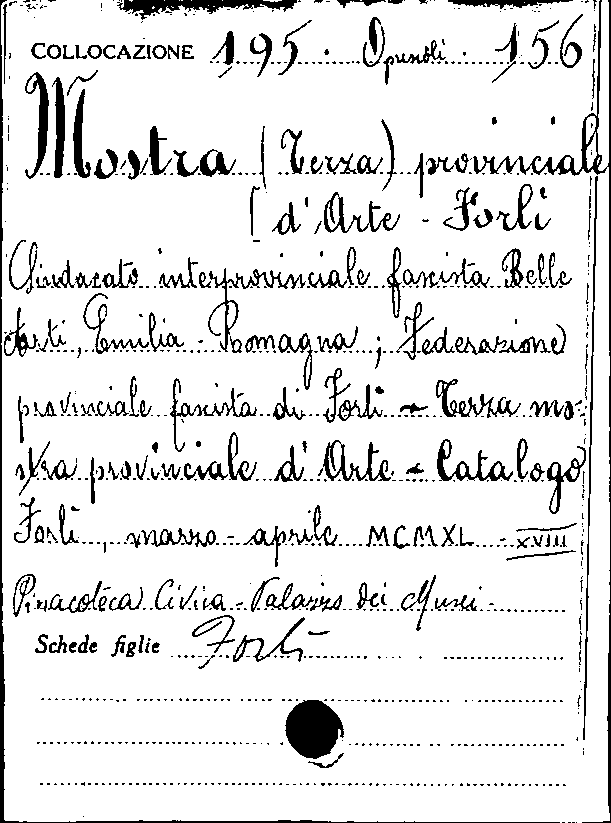 COLLOCAZIONE 195 · Opuscoli · 156
Mostra (Terza) provinciale
[ d'Arte - Forlì
Sindacato interprovinciale fascista Belle
Arti, Emilia - Romagna ; Federazione
provinciale fascista di Forlì - Terza mo-
stra provinciale d'Arte - Catalogo
Forlì, marzo - aprile MCMXL - XVIII
Pinacoteca Civica - Palazzo dei Musei -
Schede figlie Forlì